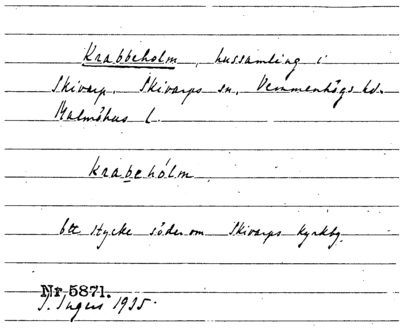 Krabbeholm, hussamling i
Skivarp, Skivarps sn, Vemmenhögs hd.
Malmöhus l.
krabehólm
Ett stycke söder om Skivarps kyrkby.
Nr 5871.
S. Ingers 1935.